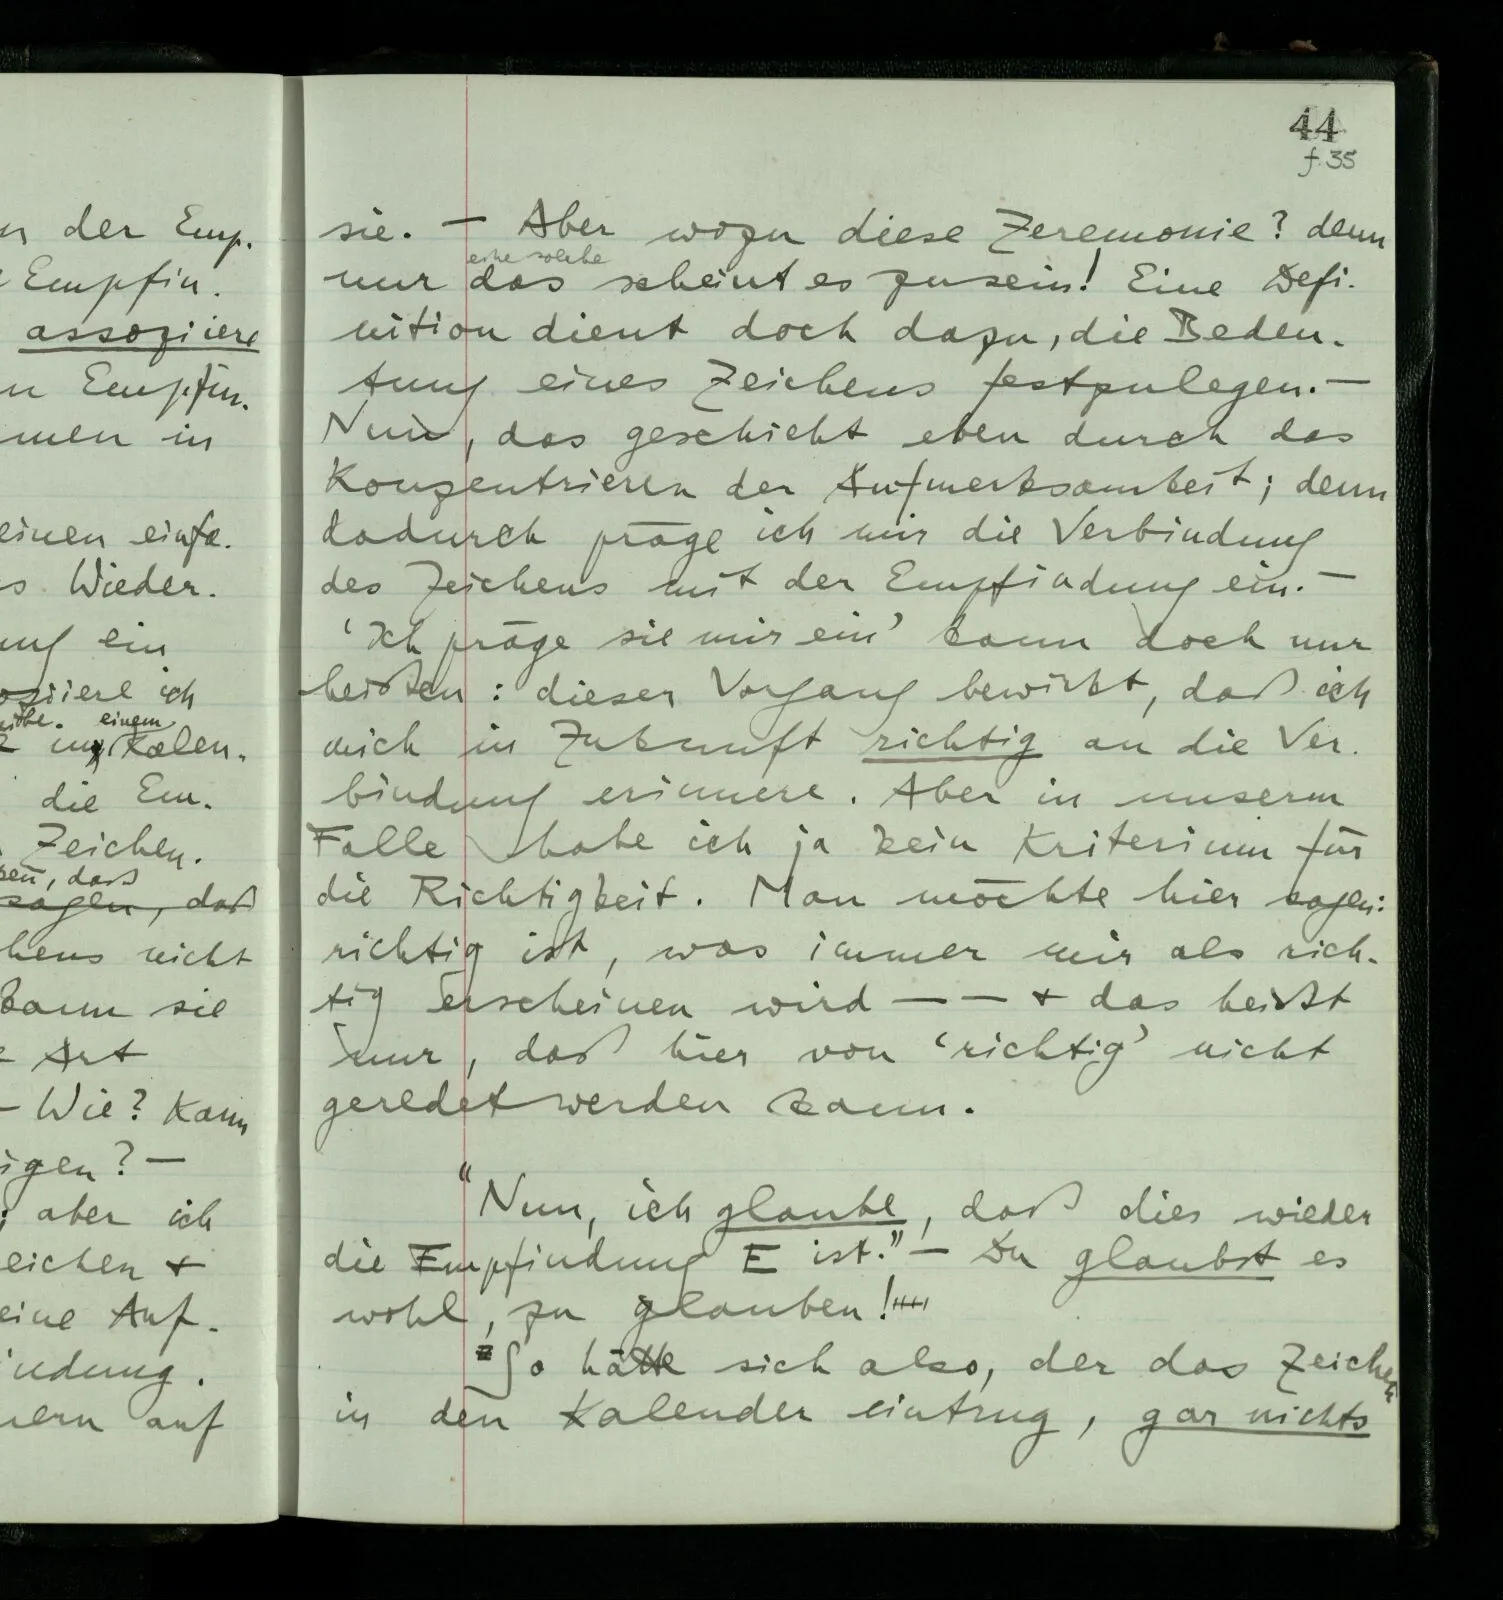 44
f. 35
der Emp.
Empfin.
assoziiere
Empfin.
in
einen einfa.
Wieder.
ein
ich
einem
Kalen.
die Em.
Zeichen.
daß
sagen, daß
nicht
kann sie
Art
– Wie? Kann
? –
; aber ich
+
eine Auf-
auf
sie. – Aber wozu diese Zeremonie? denn
eine solche
nur das scheint es zu sein! Eine Defi-
nition dient doch dazu, die Bedeu-
tung eines Zeichens festzulegen. –
Nun, das geschieht eben durch das
Konzentrieren der Aufmerksamkeit; denn
dadurch präge ich mir die Verbindung
des Zeichens mit der Empfindung ein. –
‘Ich präge sie mir ein’ kann doch nur
heißen: dieser Vorgang bewirkt, daß ich
mich in Zukunft richtig an die Ver-
bindung erinnere. Aber in unserm
Falle habe ich ja kein Kriterium für
die Richtigkeit. Man möchte hier sagen:
richtig ist, was immer mir als rich-
tig erscheinen wird – – + das heißt
nur, daß hier von ‘richtig’ nicht
geredet werden kann.
“Nun, ich glaube, daß dies wieder
die Empfindung E ist.” – Du glaubst es
wohl, zu glauben!
So hätte sich also, der das Zeichen
in den Kalender eintrug, gar nichts